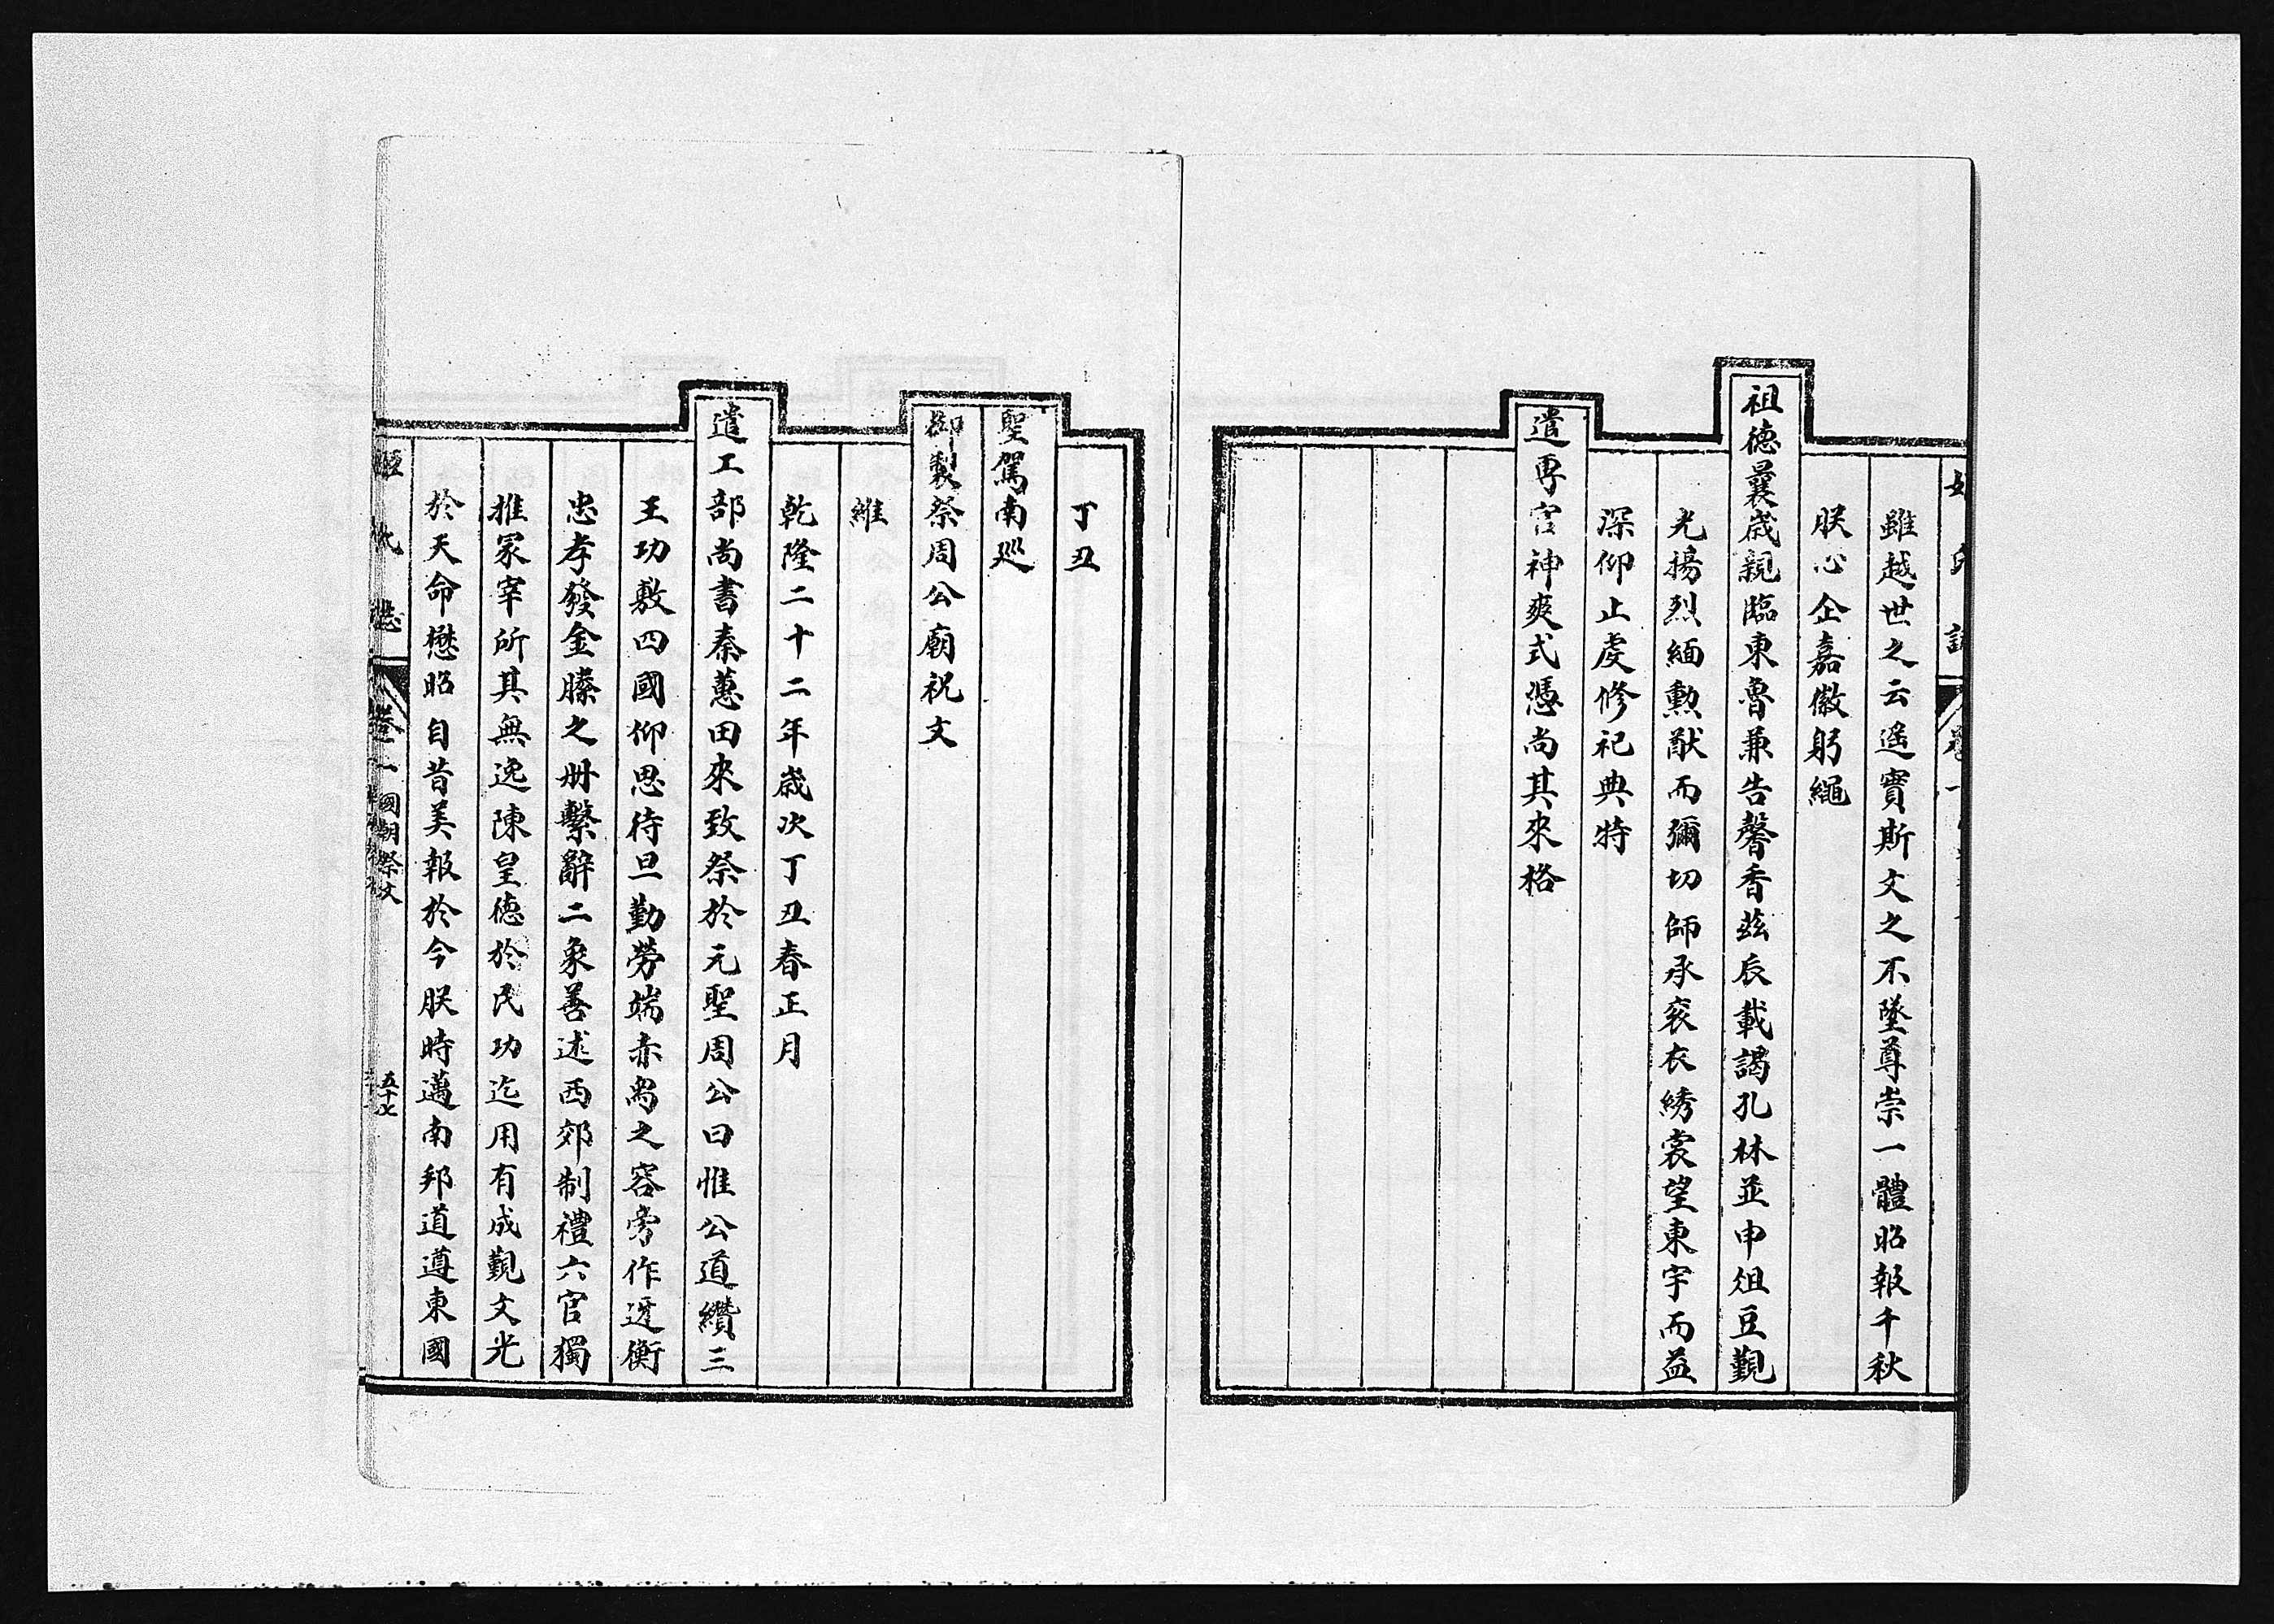 雖越世之云遥實斯文之不墜尊崇一體昭報千秋
朕心企嘉徽躬繩
祖德曩歲親臨東魯兼告馨香茲辰載謁孔林並申俎豆覲
光揚烈緬勲猷而彌切師承衮衣綉裳望東宇而益
深仰止虔修祀典特
遣專官神爽式憑尚其來格
丁丑
聖駕南巡
御製祭周公廟祝文
維
乾隆二十二年歲次丁丑春正月
遣工部尚書秦蕙田來致祭於元聖周公曰惟公道纘三
王功敷四國仰思待旦勤勞端赤舄之容旁作迓衡
忠孝發金縢之册繫辭二象善述西郊制禮六官獨
推冢宰所其無逸陳皇德於民功迄用有成覲文光
於天命懋昭自昔美報於今朕時邁南邦道遵東國
卷一 國朝祭文 五十七